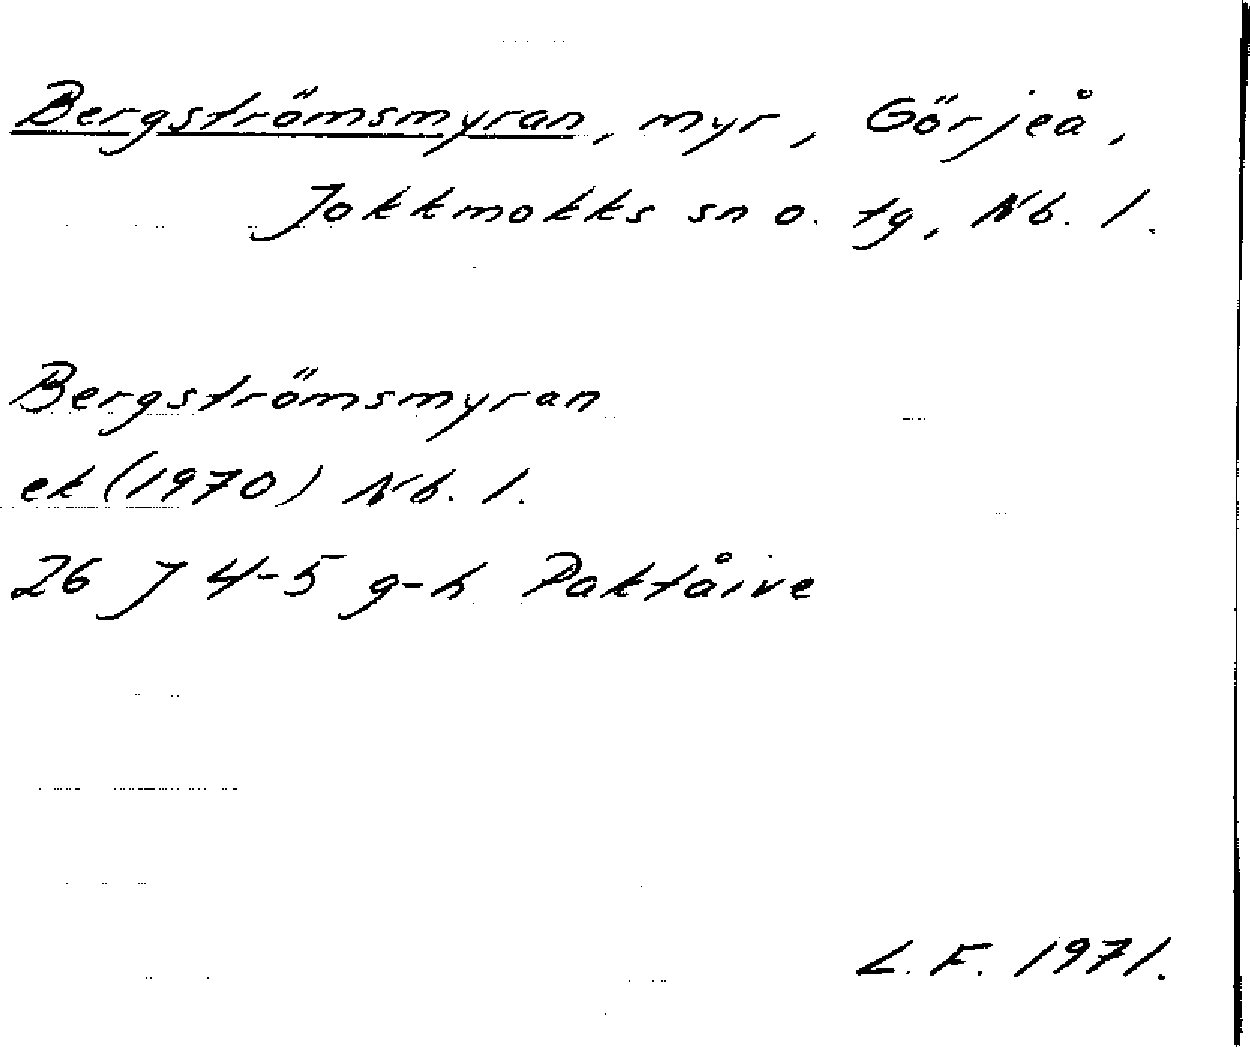 Bergströmsmyran, myr, Görjeå,
Jokkmokks sn o. tg, Nb. l.
Bergströmsmyran
ek (1970) Nb. l.
26 J 4-5 g-h Paktåive
L. F. 1971.